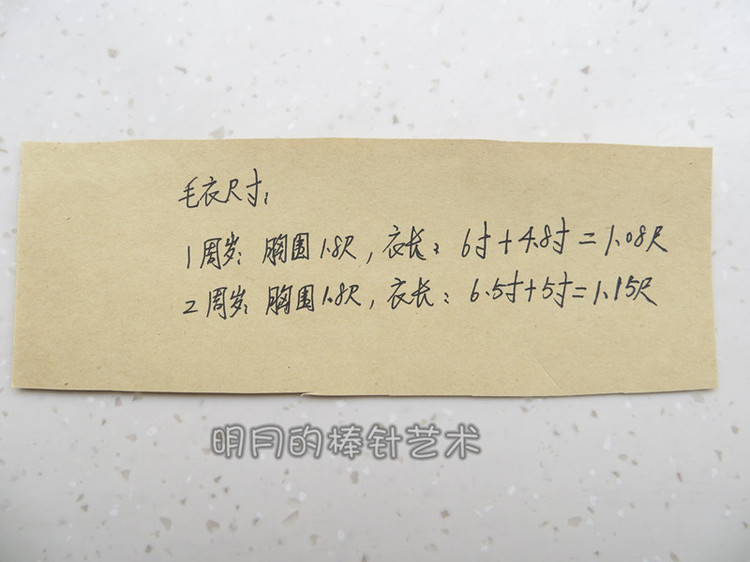 毛衣尺寸:
1周岁: 胸围1.8尺, 衣长: 6寸+4.8寸=1.08尺
2周岁: 胸围1.8尺, 衣长: 6.5寸+5寸=1.15尺
明月的棒针艺术